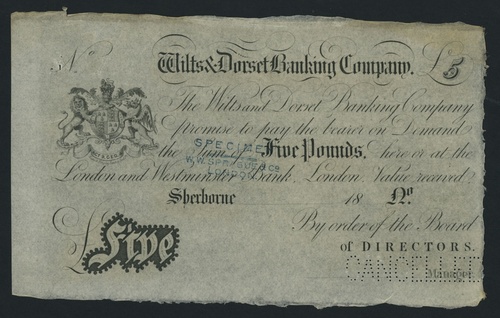 No
Wilts & Dorset Banking Company. £5
The Wilts and Dorset Banking Company
promise to pay the bearer on Demand
the Sum of Five Pounds, here or at the
London and Westminster Bank, London. Value received.
Sherborne 18 No
By order of the Board
of DIRECTORS.
£Five
Manager
SPECIMEN
LONDON
CANCELLED